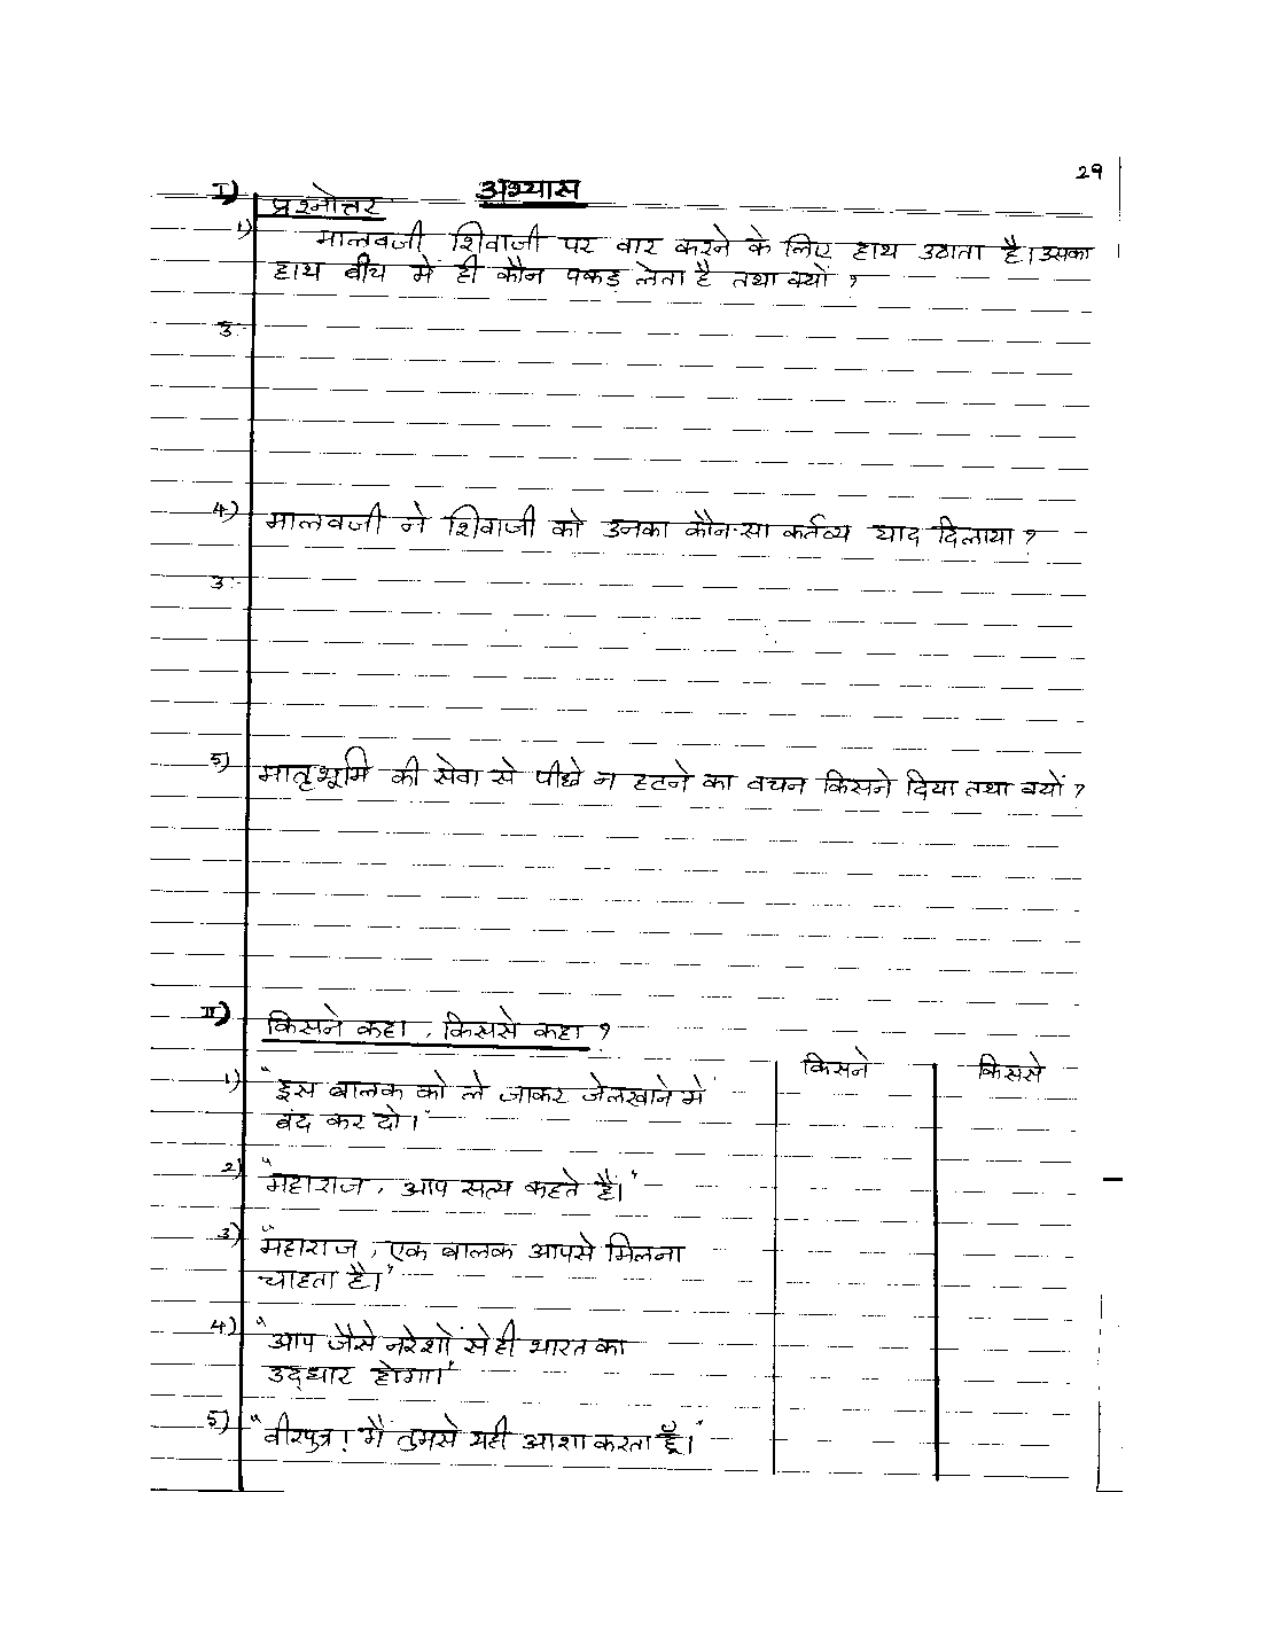 29
I) अभ्यास
प्रश्नोत्तर
1) मालवजी शिवाजी पर वार करने के लिए हाथ उठाता है। उसका
हाथ बीच में ही कौन पकड़ लेता है तथा क्यों ?
उ:-
4) मालवजी ने शिवाजी को उनका कौन-सा कर्तव्य याद दिलाया ?
उ:-
5) मातृभूमि की सेवा से पीछे न हटने का वचन किसने दिया तथा क्यों ?
II) किसने कहा, किससे कहा ?
किसने किससे
1) "इस बालक को ले जाकर जेलखाने में
बंद कर दो।"
2) "महाराज, आप सत्य कहते हैं।"
3) "महाराज, एक बालक आपसे मिलना
चाहता है।"
4) "आप जैसे नरेशों से ही भारत का
उद्धार होगा।"
5) "वीरपुत्र! मैं तुमसे यही आशा करता हूँ।"